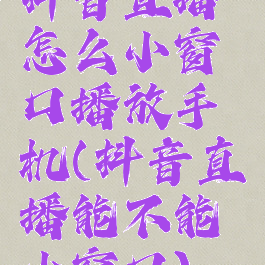 抖音直播
怎么小窗
口播放手
机(抖音直
播能不能
小窗口)